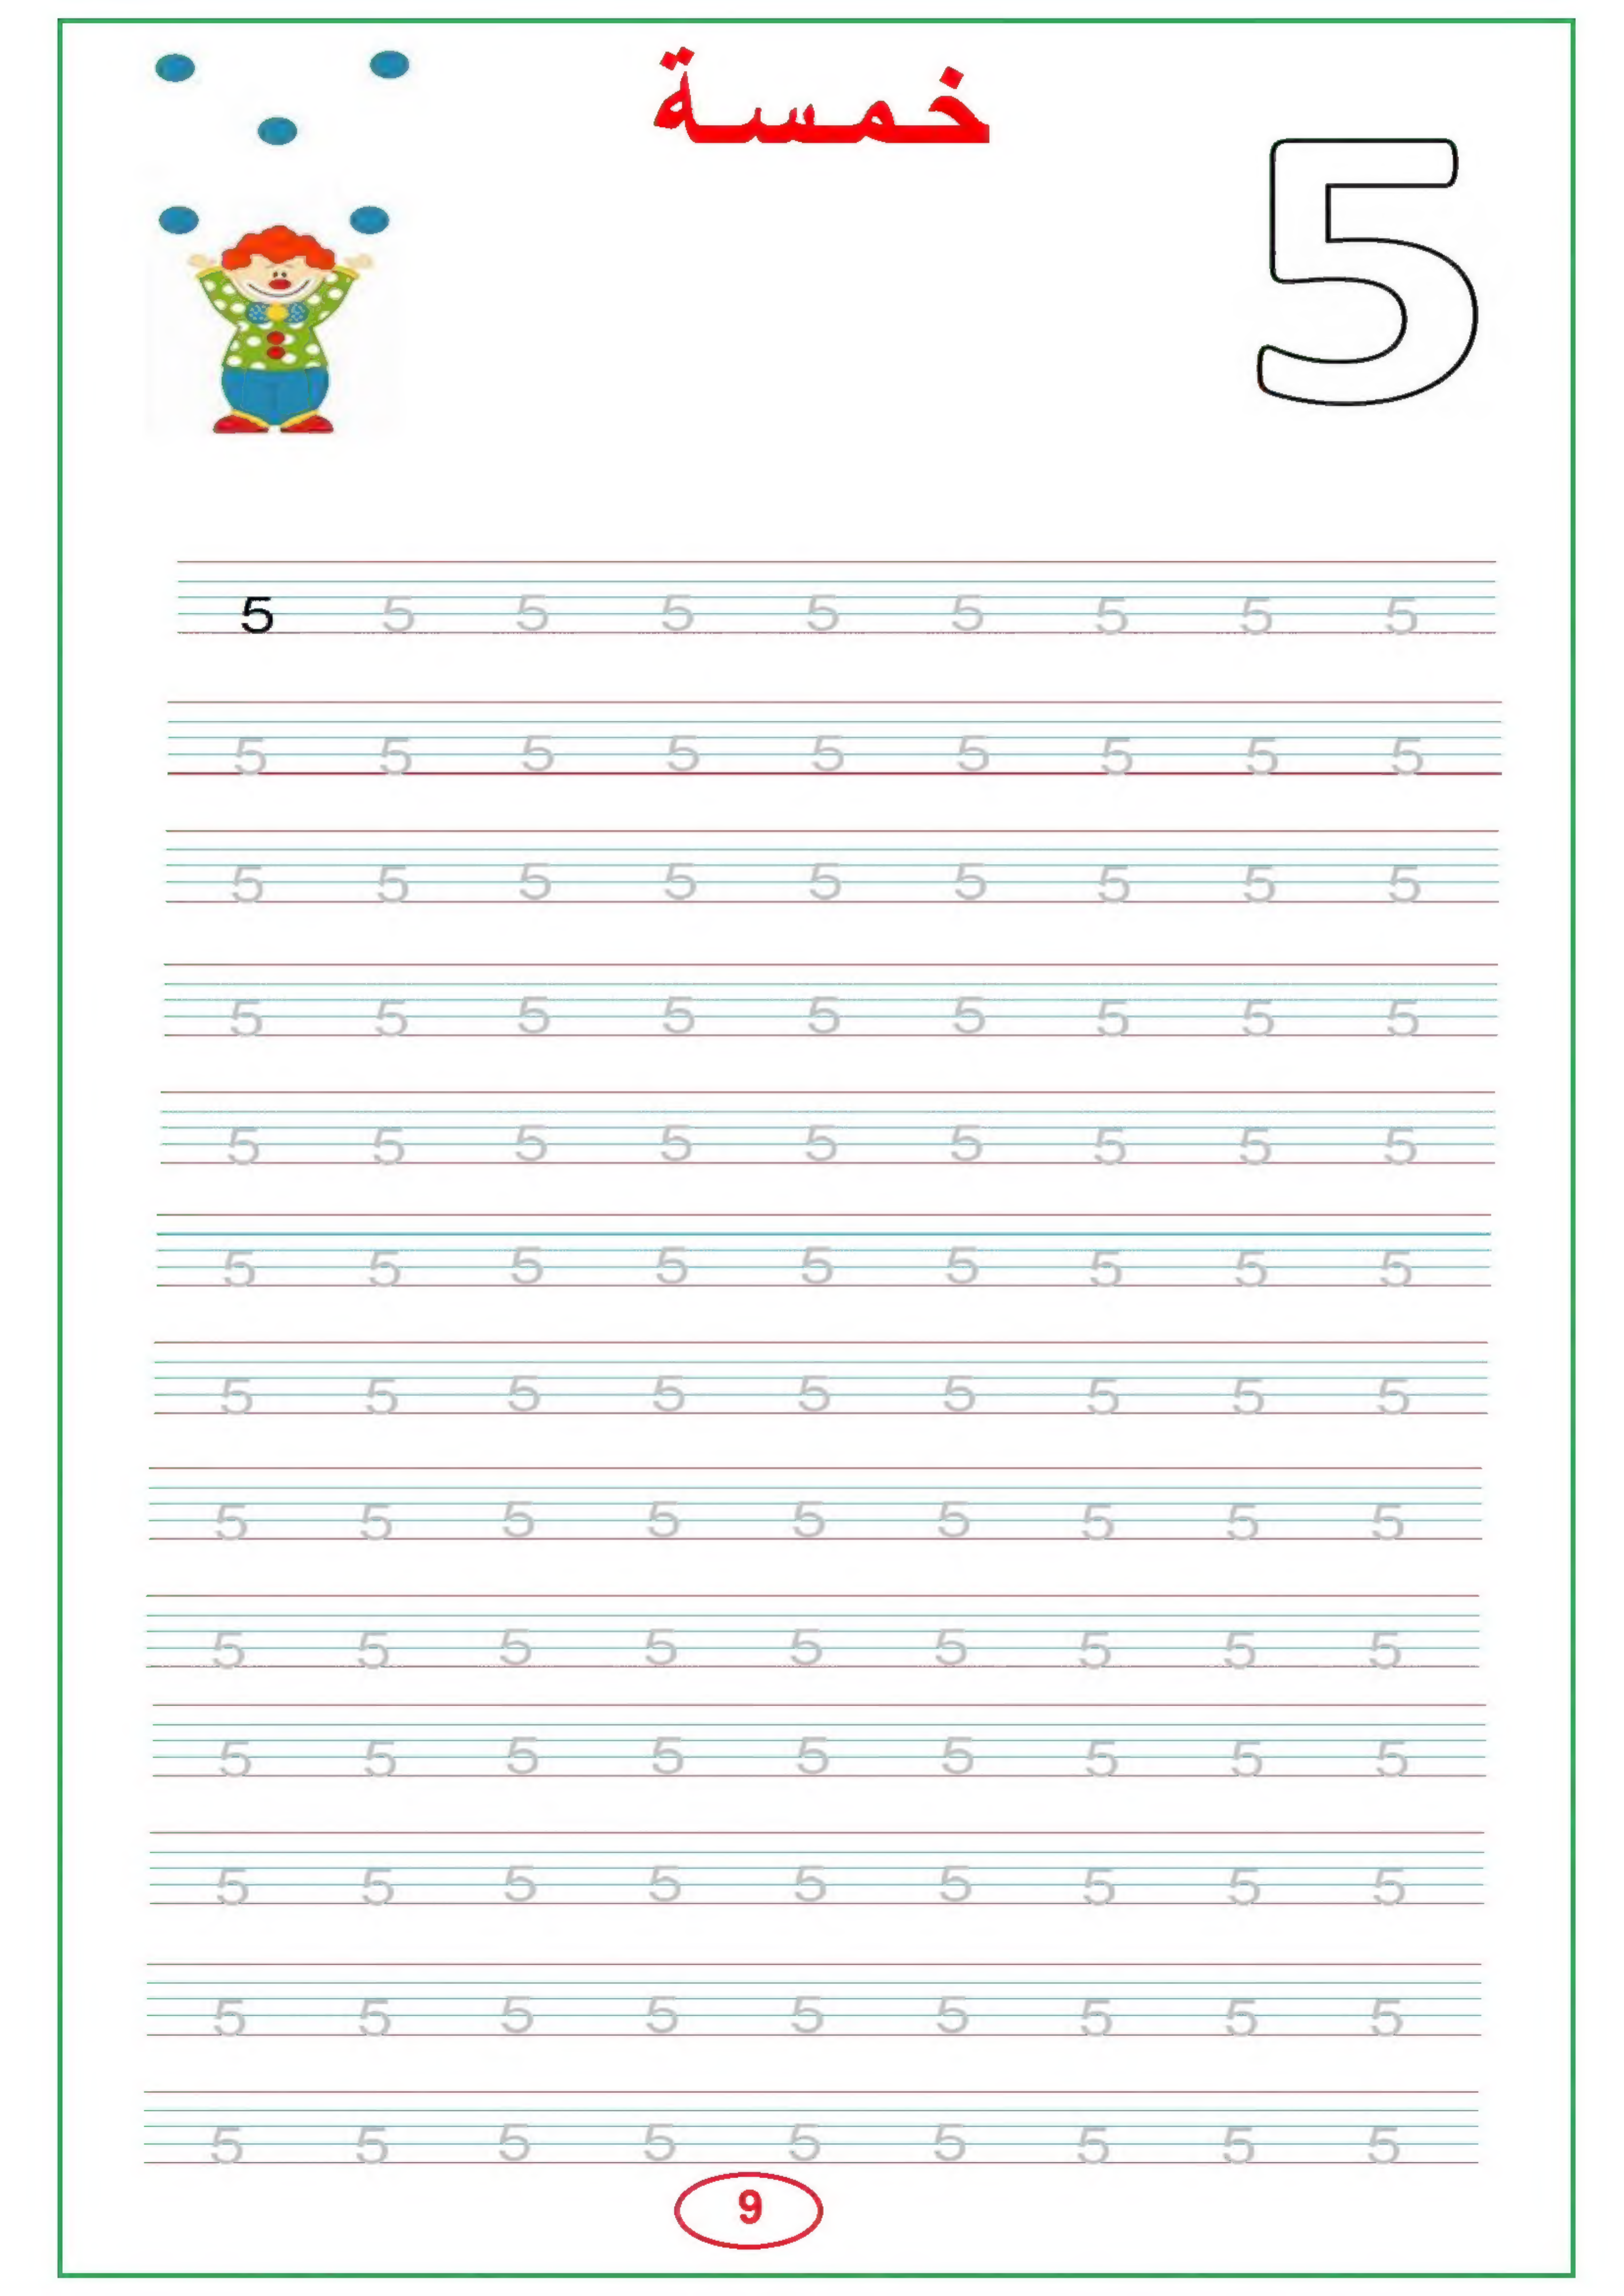 خمسة
5
5 5 5 5 5 5 5 5 5
5 5 5 5 5 5 5 5 5
5 5 5 5 5 5 5 5 5
5 5 5 5 5 5 5 5 5
5 5 5 5 5 5 5 5 5
5 5 5 5 5 5 5 5 5
5 5 5 5 5 5 5 5 5
5 5 5 5 5 5 5 5 5
5 5 5 5 5 5 5 5 5
5 5 5 5 5 5 5 5 5
5 5 5 5 5 5 5 5 5
5 5 5 5 5 5 5 5 5
5 5 5 5 5 5 5 5 5
9